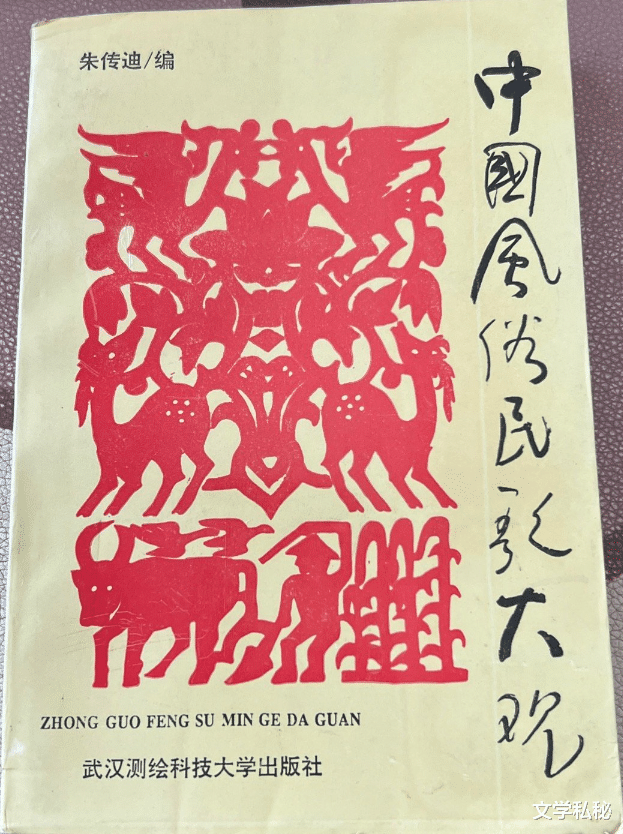 朱传迪/编
中國风俗民歌大观
ZHONG GUO FENG SU MIN GE DA GUAN
武汉测绘科技大学出版社
文学私秘